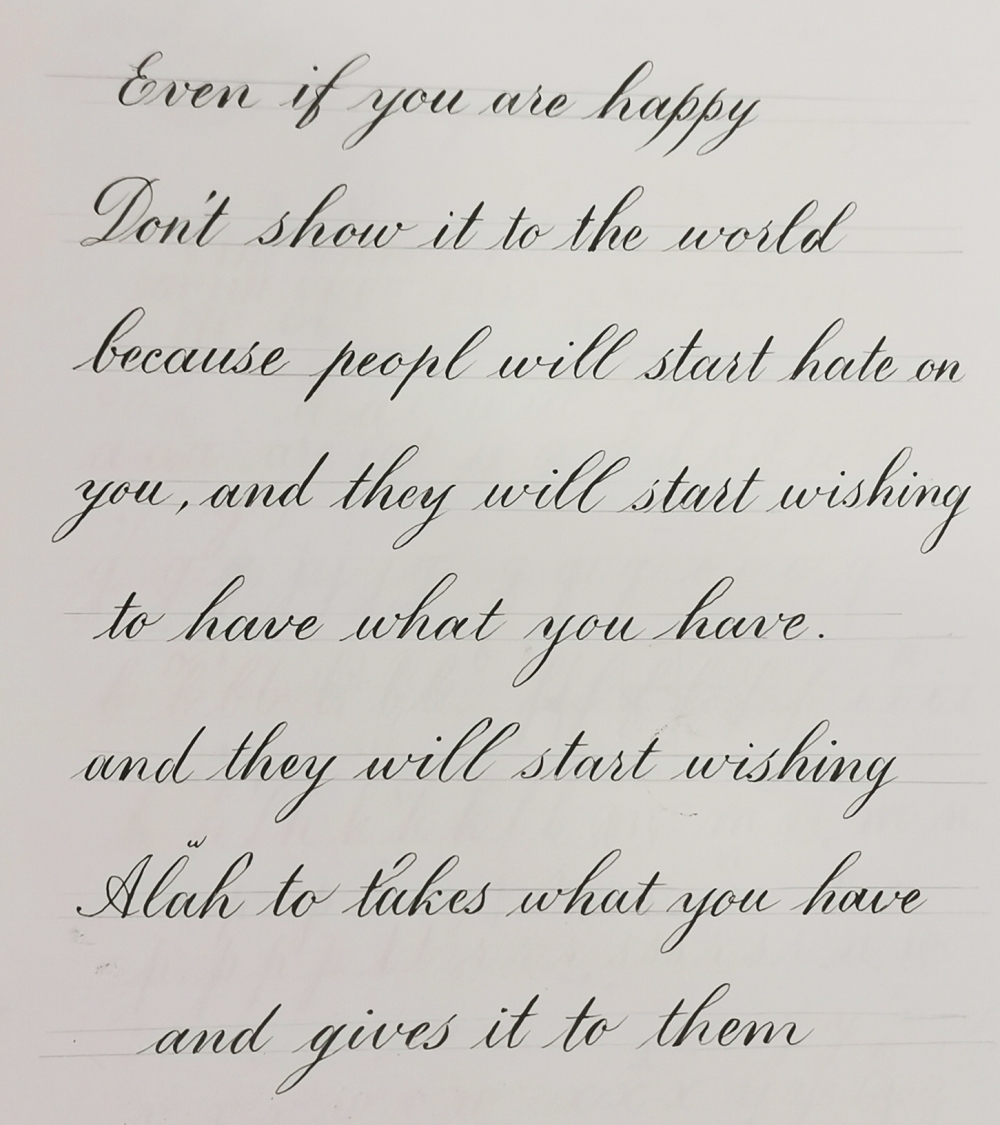 Even if you are happy
Don't show it to the world
because peopl will start hate on
you, and they will start wishing
to have what you have.
and they will start wishing
Alah to takes what you have
and gives it to them